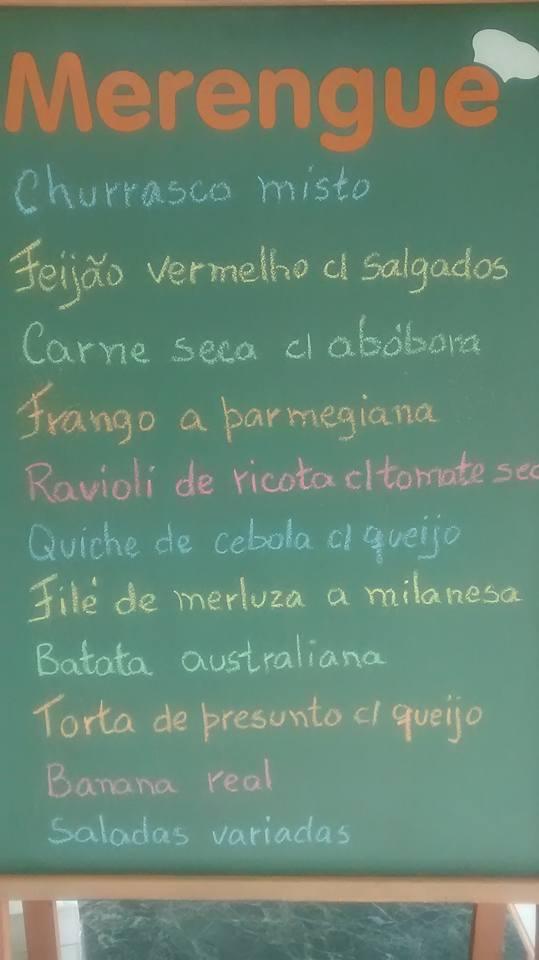 Merengue
Churrasco misto
Feijão vermelho c/ salgados
Carne seca c/ abóbora
Frango a parmegiana
Ravioli de ricota c/ tomate sec
Quiche de cebola c/ queijo
Filé de merluza a milanesa
Batata australiana
Torta de presunto c/ queijo
Banana real
Saladas variadas